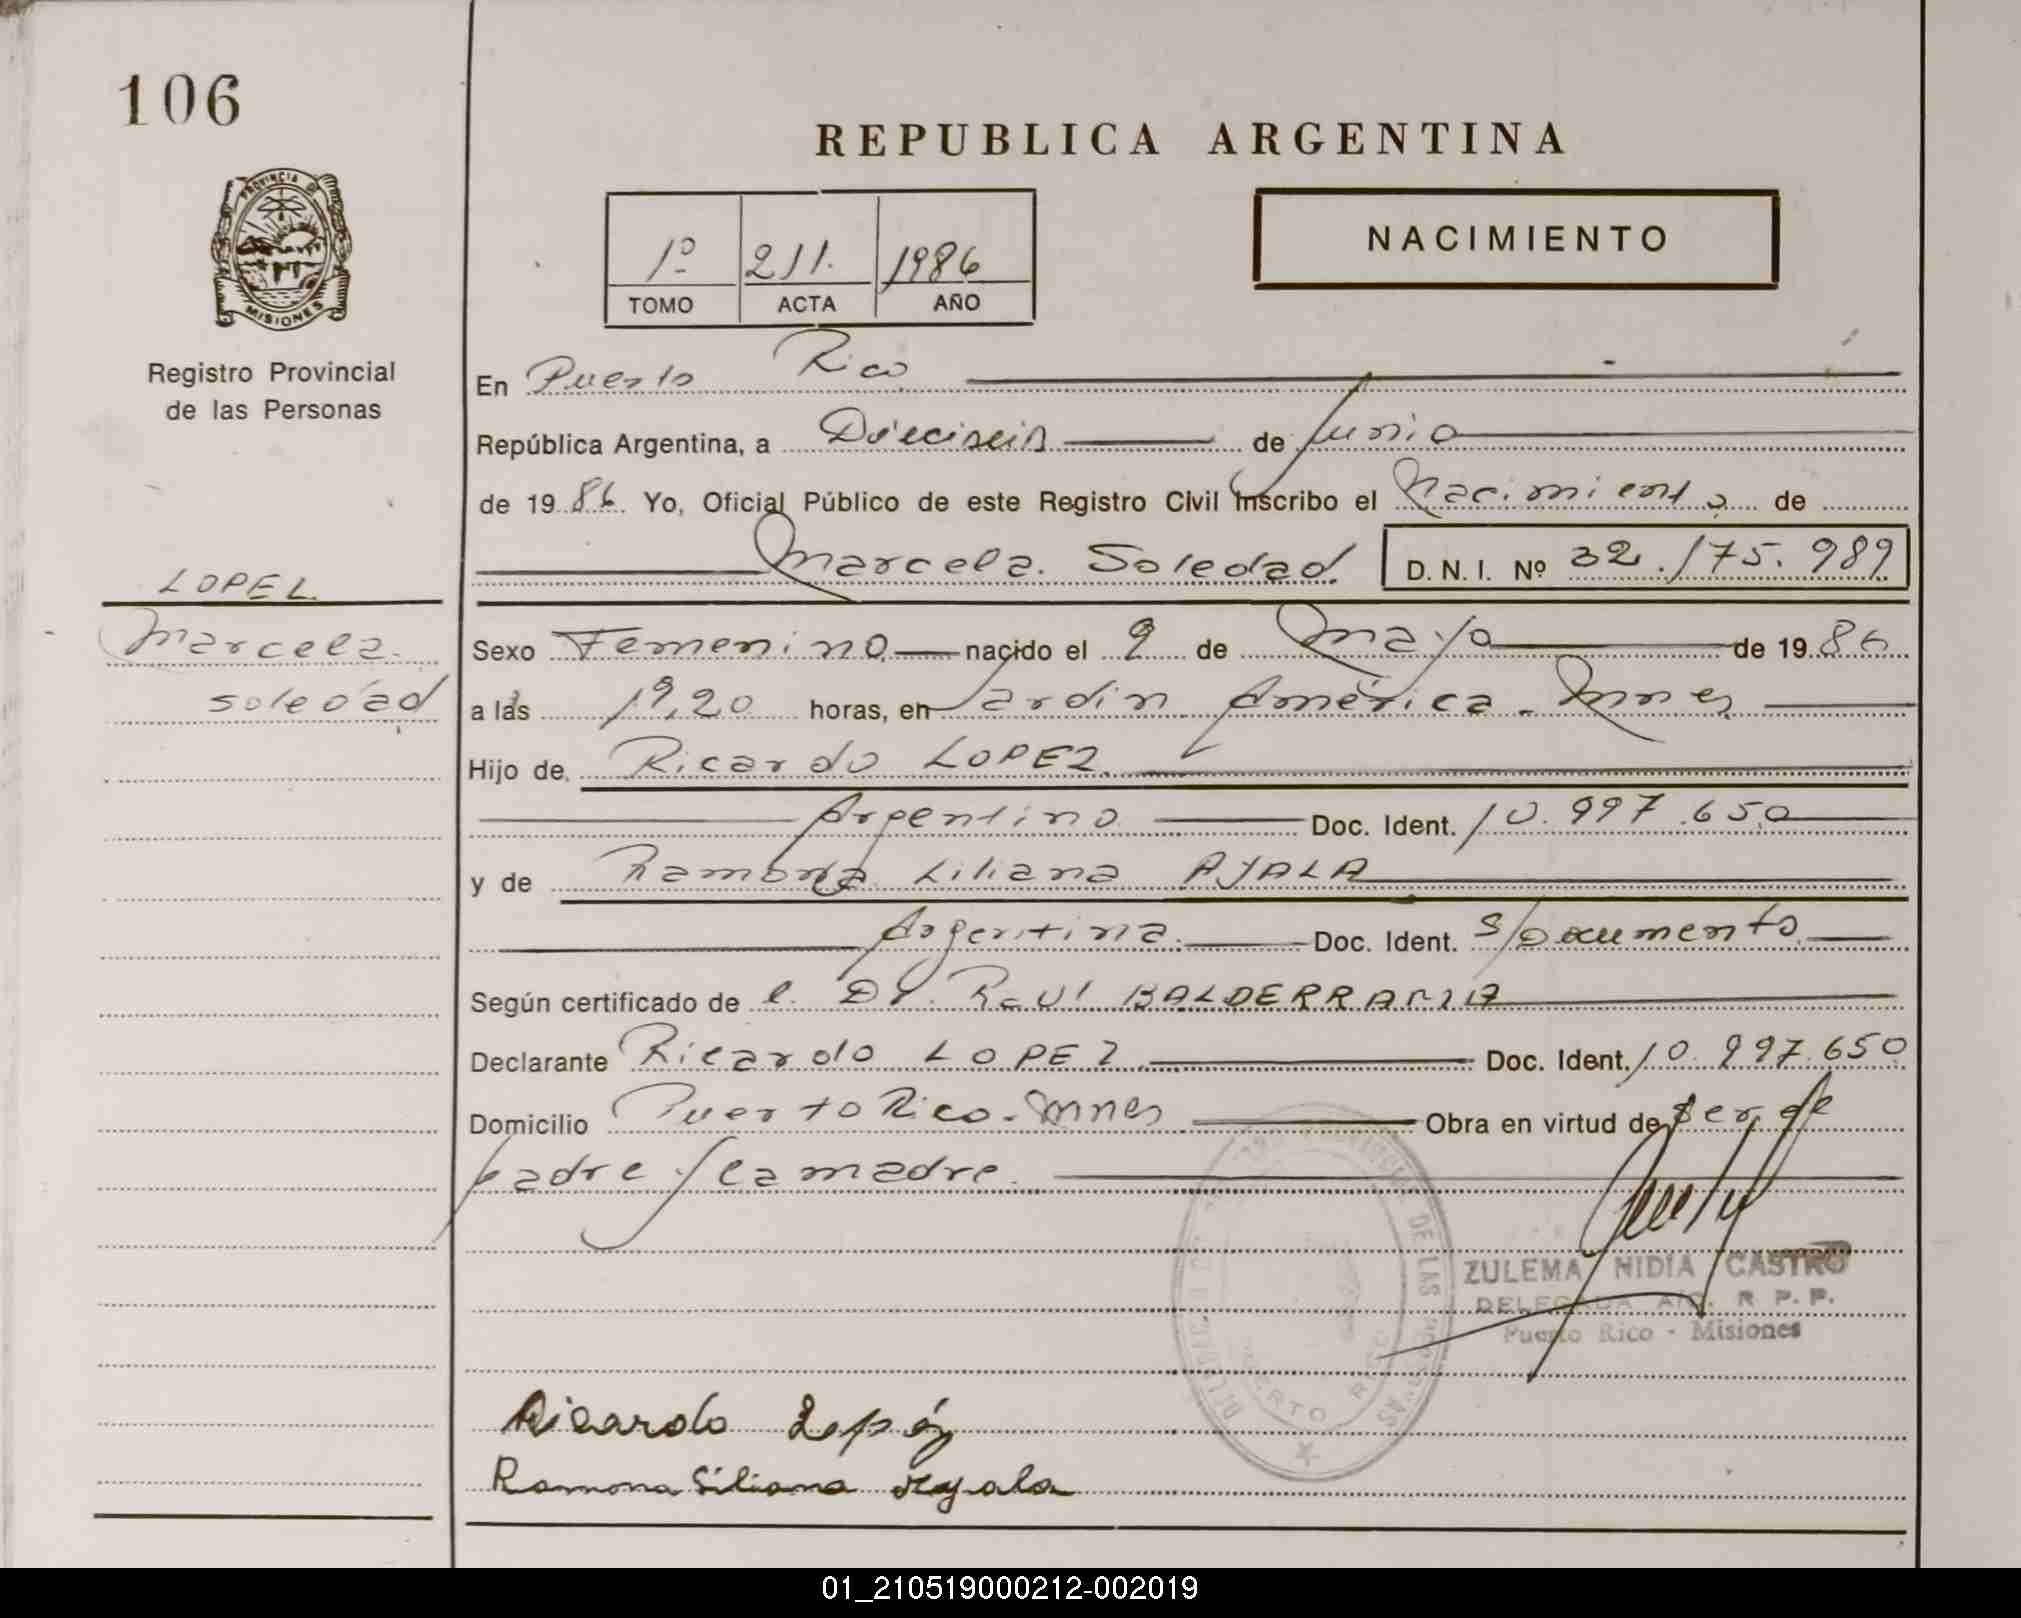 106
REPUBLICA ARGENTINA
PROVINCIA DE
MISIONES
1º 211. 1986
TOMO ACTA AÑO
NACIMIENTO
Registro Provincial
de las Personas
En Puerto Rico
República Argentina, a Dieciseis de Junio
de 1986. Yo, Oficial Público de este Registro Civil Inscribo el Nacimiento de
Marcela Soledad D. N. I. Nº 32.175.989
LOPEZ
Marcela
soledad
Sexo Femenino nacido el 9 de Mayo de 1986
a las 19,20 horas, en Jardín América - Mnes
Hijo de Ricardo LOPEZ
Argentino Doc. Ident. 10.997.650
y de Ramona Liliana AYALA
Argentina Doc. Ident. s/Documento
Según certificado de l. Dr. Raúl BALDERRAMA
Declarante Ricardo LOPEZ Doc. Ident. 10.997.650
Domicilio Puerto Rico - Mnes Obra en virtud de ser el
padre y la madre.
ZULEMA NIDIA CASTRO
DELEGADA R. P. P.
Puerto Rico - Misiones
DE LAS
PUERTO RICO
Ricardo Lopéz
Ramona Liliana Ayala
01_210519000212-002019